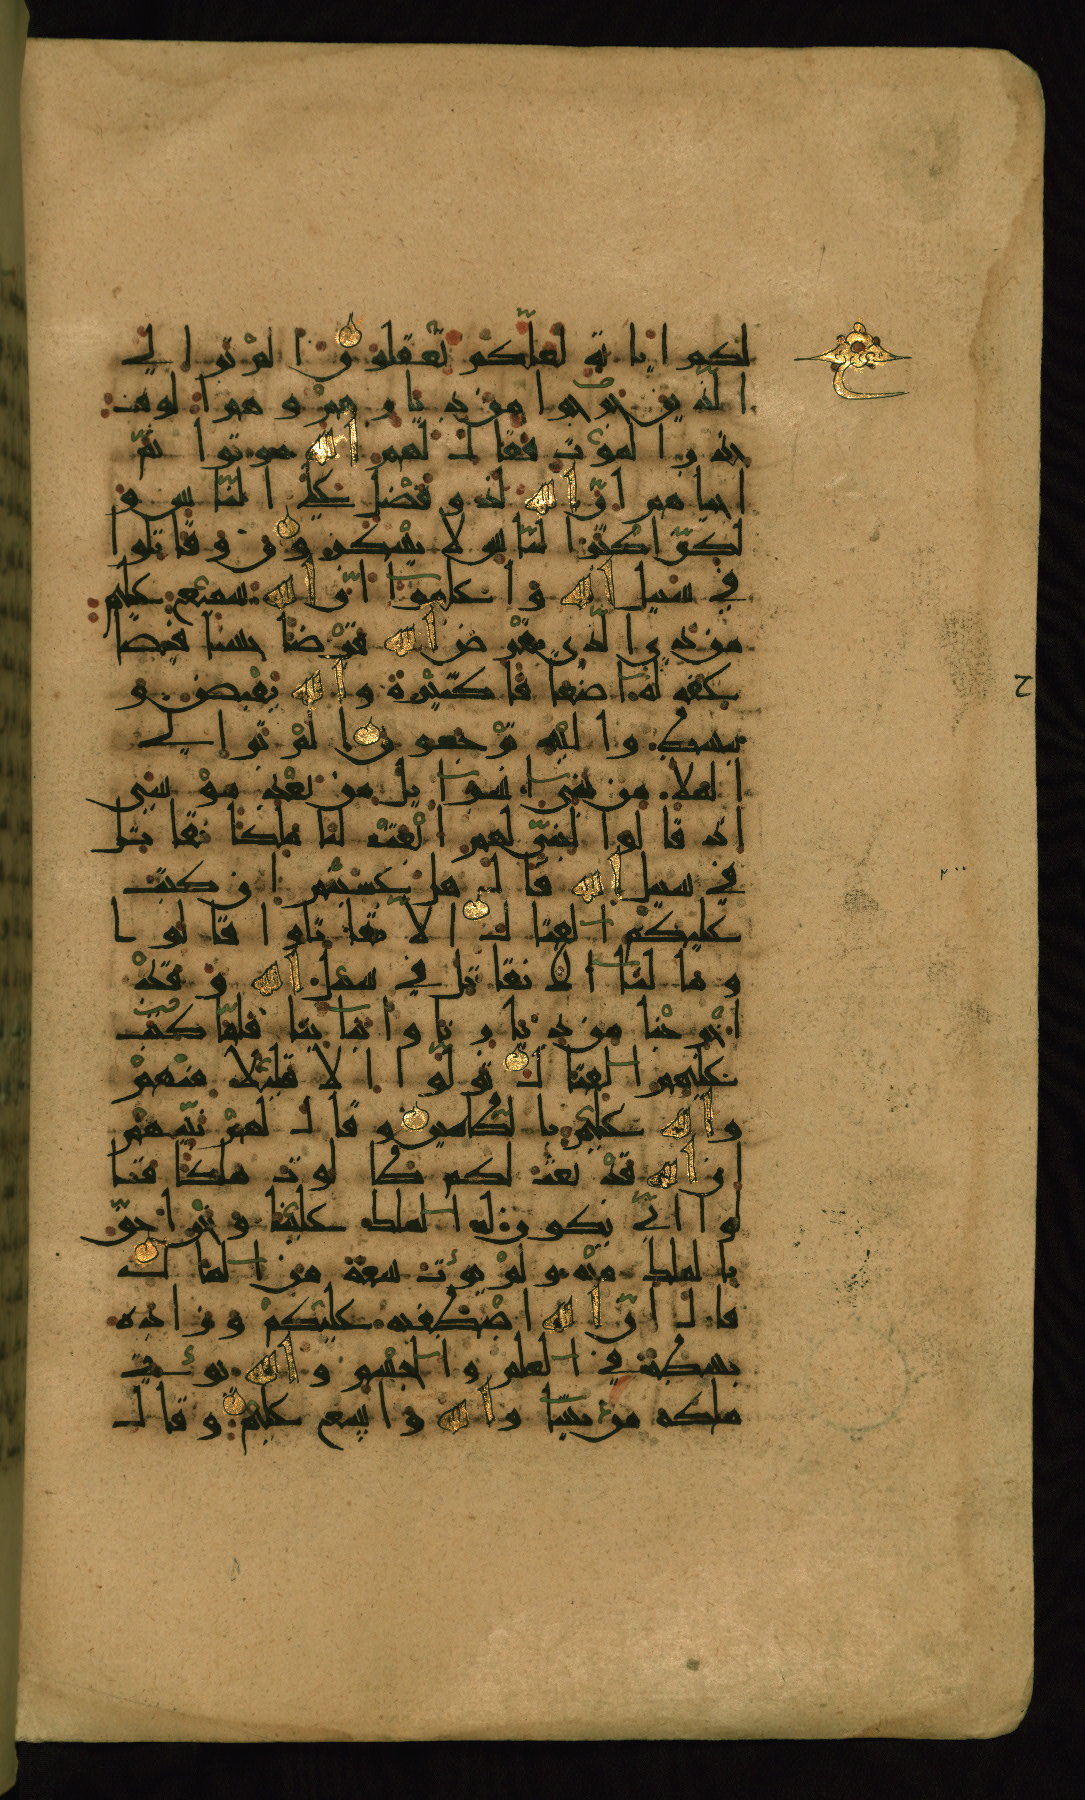 لكم اياته لعلكم تعقلون الم تر الى
الذين خرجوا من ديارهم وهم الوف
حذر الموت فقال لهم الله موتوا ثم
احياهم ان الله لذو فضل على الناس و
لكن اكثر الناس لا يشكرون وقاتلوا
في سبيل الله واعلموا ان الله سميع عليم
من ذي الذي يقرض الله قرضا حسنا فيضا
عفه له اضعافا كثيرة والله يقبض و
يبسط واليه ترجعون الم تر الى
الملا من بني اسرايل من بعد موسى
اذ قالوا لنبي لهم ابعث لنا ملكا نقاتل
في سبيل الله قال هل عسيتم ان كتب
عليكم القتال الا تقاتلوا قالوا
وما لنا الا نقاتل في سبيل الله وقد
اخرجنا من ديارنا وابنائنا فلما كتب
عليهم القتال تولوا الا قليلا منهم
والله عليم بالظالمين وقال لهم نبيهم
ان الله قد بعث لكم طالوت ملكا قا
لوا انى يكون له الملك علينا ونحن احق
بالملك منه ولم يؤت سعة من المال
قال ان الله اصطفه عليكم وزاده
بسطة في العلم والجسم والله يؤتي
ملكه من يشا والله واسع عليم وقال
ح
٢٠٠